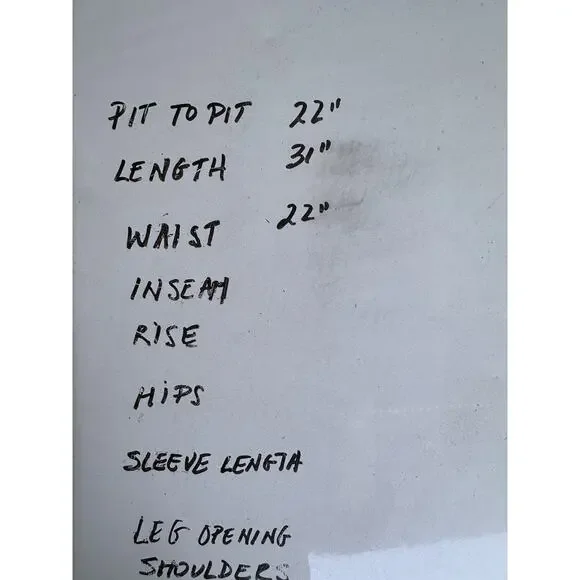 PIT TO PIT 22"
LENGTH 31"
WAIST 22"
INSEAM
RISE
HiPS
SLEEVE LENGTH
LEG OPENING
SHOULDERS